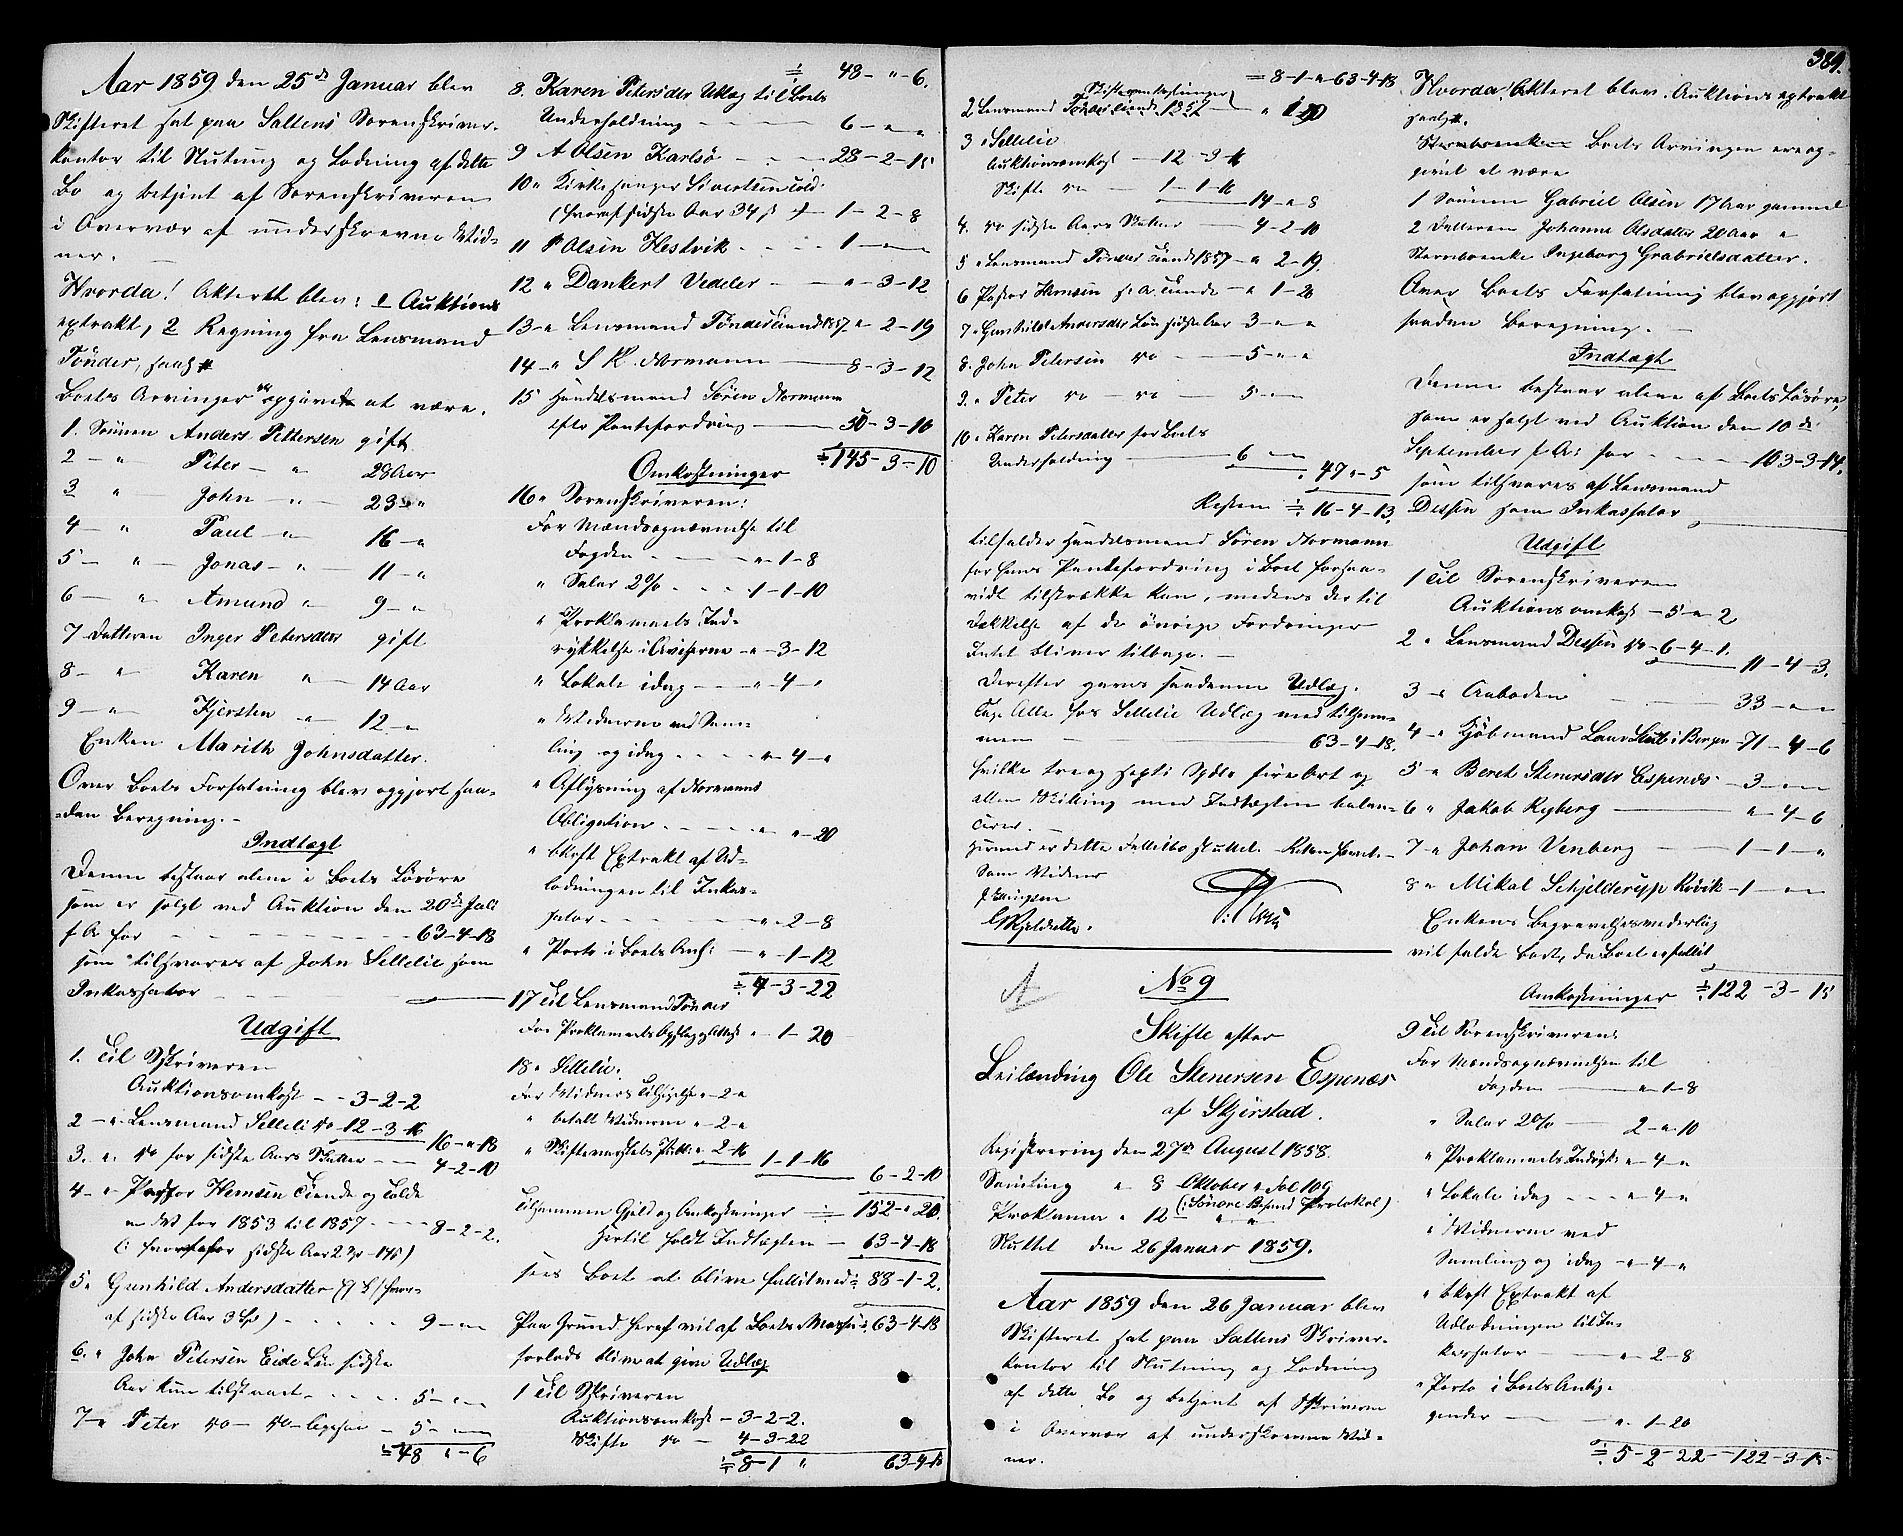 Aar 1859 den 25de Januar blev
Skifteret sat paa Saltens Sorenskriver-
kontor til Slutning og Lodning af dette
Bo og betjent af Sorenskriveren
i Overvær af underskrevne Vid-
ner. —
Hvorda! Akteret blev: 1 Auktions
extrakt, 2 Regning fra Lensmand
Tønder,
Boets Arvinger opgivet at være.
1. Sønnen Anders Pettersen gift
2 — " Peter — " 28 Aar
3 " — John — " — 23 — "
4 — " Paul — " 16 — "
5 — " — Jonas — " — 11 — "
6 — " Amund " — 9 — "
7 Datteren Inger Petersdatr gift
8 — " Karen " — 14 Aar
9 — " — Kjersten — " — 12 — "
Enken Marith Johnsdatter.
Over Boets Forfatning blev opgjort saa-
dan Beregning. —
Indtægt
Denne bestaar alene i Boets Løsøre
som er solgt ved Auktion den 20de Juli
f A for — 63-4-18
som tilsvares af John Setteli som
Inkassator
Udgift
1. Til Sskriveren
Auktionsomkost — 3-2-2
2 — " Lensmand Setteli do 12-3-16
16-"-18
3. " do for sidste Aars Skatter — 4-2-10
4 — " Pastor Hemsen Tiende og Told
for 1853 til 1857 — 8-2-2.
(: hvoraf for sidste Aar
5 " Gunhild Andersdatter
af sidste Aar 3 Spd) — 9-"-"
6. " John Petersen Eide Løn sidste
Aar — 5-"-"
7 — " Peter do — do — 5-"-"
48 " - 6
48-"-6.
8. Karen Petersdtr Udlæg til Boets
Underholdning — 6-"-"
9 A Olsen Karlsø — 28-2-15
10 " Kirkesanger Sivertsen Told
(hvoraf sidste Aar 34 s — 1-2-8
11 P Olsen Hestvik — 1-"-"
12 " Dankert Vedeler — "-3-12
13 — " Lensmand Tønder Tiende 1857 " 2-19
14 — " S K Normann — 8-3-12
15 Handelsmand Søren Normann
efter Pantefordring — 50-3-10
145-3-10
Omkostninger
16 " Sorenskriveren:
For Mændsopnævnelse til
Fogden — "-1-8
" Salar 2% — 1-1-10
" Proklamaets Ind-
rykkelse i Aviserne — "-3-12
" Lokale idag — "-4-"
" Vidnerne ved Sam-
ling og idag — "-4-"
" Aflysning af Normanns
Obligation — "-"-20
" bkrft Extrakt af Ud-
lodningen til Inkas-
sator — "-2-8
" Porto i Boets Anl: — "-1-12
4-3-22
17 Til Lensmand Tønder
For Proklamaets Opslag " — 1-20
18 " Setteli.
For Vidners Tilsigelse "-2-"
" betalt Vidnerne "-2-"
" "-2-16
1-1-16
6-2-10
Tilsammen Gjeld og Omkostninger 152-"-20.
Hertil holdt Indtægten — 63-4-18
sees Boet at blive fallit med 88-1-2.
Paa Grund heraf vil af Boets Masse 63-4-18
forlods blive at give Udlæg
1 Til Sskriveren
Auktionsomkost — 3-2-2.
Skifte do — 4-3-22
8-1 " 63-4-18
389.
8-1-"-63-4-18
Skifteomkostninger
2 Lensmand Tønder Tiende 1857 — "
3 " Setteli
Auktionsomkost — 12-3-16
Skifte do — 1-1-16
14-"-8
4. do sidste Aars Skatter — 4-2-10
5 " Lensmand Tønder Tiende 1857 — " 2-19.
6 Pastor Hemsen f. A. Tiende — " 1-28
7 " Gunhild Andersdtr Løn sidste Aar 3-"-"
8. John Petersen do — 5-"-"
9. " Peter do — do — 5-"-"
10 " Karen Petersdatter for Boets
Underholdning — 6 "-"
47 "-5
Resten 16-4-13.
tilfalder Handelsmand Søren Normann
for hans Pantefordring i Boet forsaa-
vidt tilstrække kan, medens der til
Dækkelse af de øvrige Fordringer
Intet bliver tilbage. —
Derefter gaves saadanne Udlæg.
Tage Alle hos Setteli Udlæg med tilsam-
men — 63-4-18.
hvilke tre og sexti Spdlr fire Ort og
atten Skilling med Indtægten balan-
cerer. —
Hermed er dette Fallitbo sluttet. Retten hævet. —
Som Vidner
No 9
Skifte efter
Leilænding Ole Stenersen Espenæs
af Skjerstad.
Registrering den 27de August 1858.
Samling " 8 Oktober " Fol 109
Proklama " 12 " " (: Søndre Distrid Protokol)
Sluttet den 26 Januar 1859.
Aar 1859 den 26 Januar blev
Skifteret sat paa Saltens Skriver-
kontor til Slutning og Lodning
af dette Bo og betjent af Sskriveren
i Overvær af underskrevne Vid-
ner.
Hvorda! Akteret blev. Auktions extrakt
Stervboenken Boets Arvinger ere op-
givet at være
1 Sønnen Gabriel Olsen 17 Aar gammel
2 Datteren Johanna Olsdatter 20 Aar "
Stervboenke Ingeborg Grabrielsdatter.
Over Boets Forfatning blev opgjort
saadan Beregning. —
Indtægt
Denne bestaar alene af Boets Løsøre,
som er solgt ved Auktion den 10de
September f A: for — 103-3-14.
som tilsvares af Lensmand
Dessen som Inkassator
Udgift
1 Til Sorenskriveren
Auktionsomkost — 5-"-2
2 " Lensmand Dessen do — 6-4-1.
11-4-3.
3 — " Aaboden — 33-"-"
4 — " Kjøbmand Laur Stub i Bergen — 71-4-6
5 " Beret Stenersdtr Espenæs — 3-"-"
6 " Jakob Ryberg — "-4-6
7 — " Johan Venberg — 1-1-"
8 " Mikal Schjelderup Rövik — 1-"-"
Enkens Begravelsesvederlag
vil falde bort, da Boet er fallit
Omkostninger 122-3-15
9 Til Sorenskriveren:
For Mændsopnævnelsen til
Fogden — "-1-8
" Salar 2% — 2-"-10
" Proklamaets Indryk: "-4-"
" Lokale idag — "-4-"
" Vidnerne ved
Samling og idag — "-4-"
" bkrft Extrakt af
Udlodningen til In-
kassator — "-2-8
" Porto i Boets Anlig-
gender — " 1-20
5-2-22-122-3-15